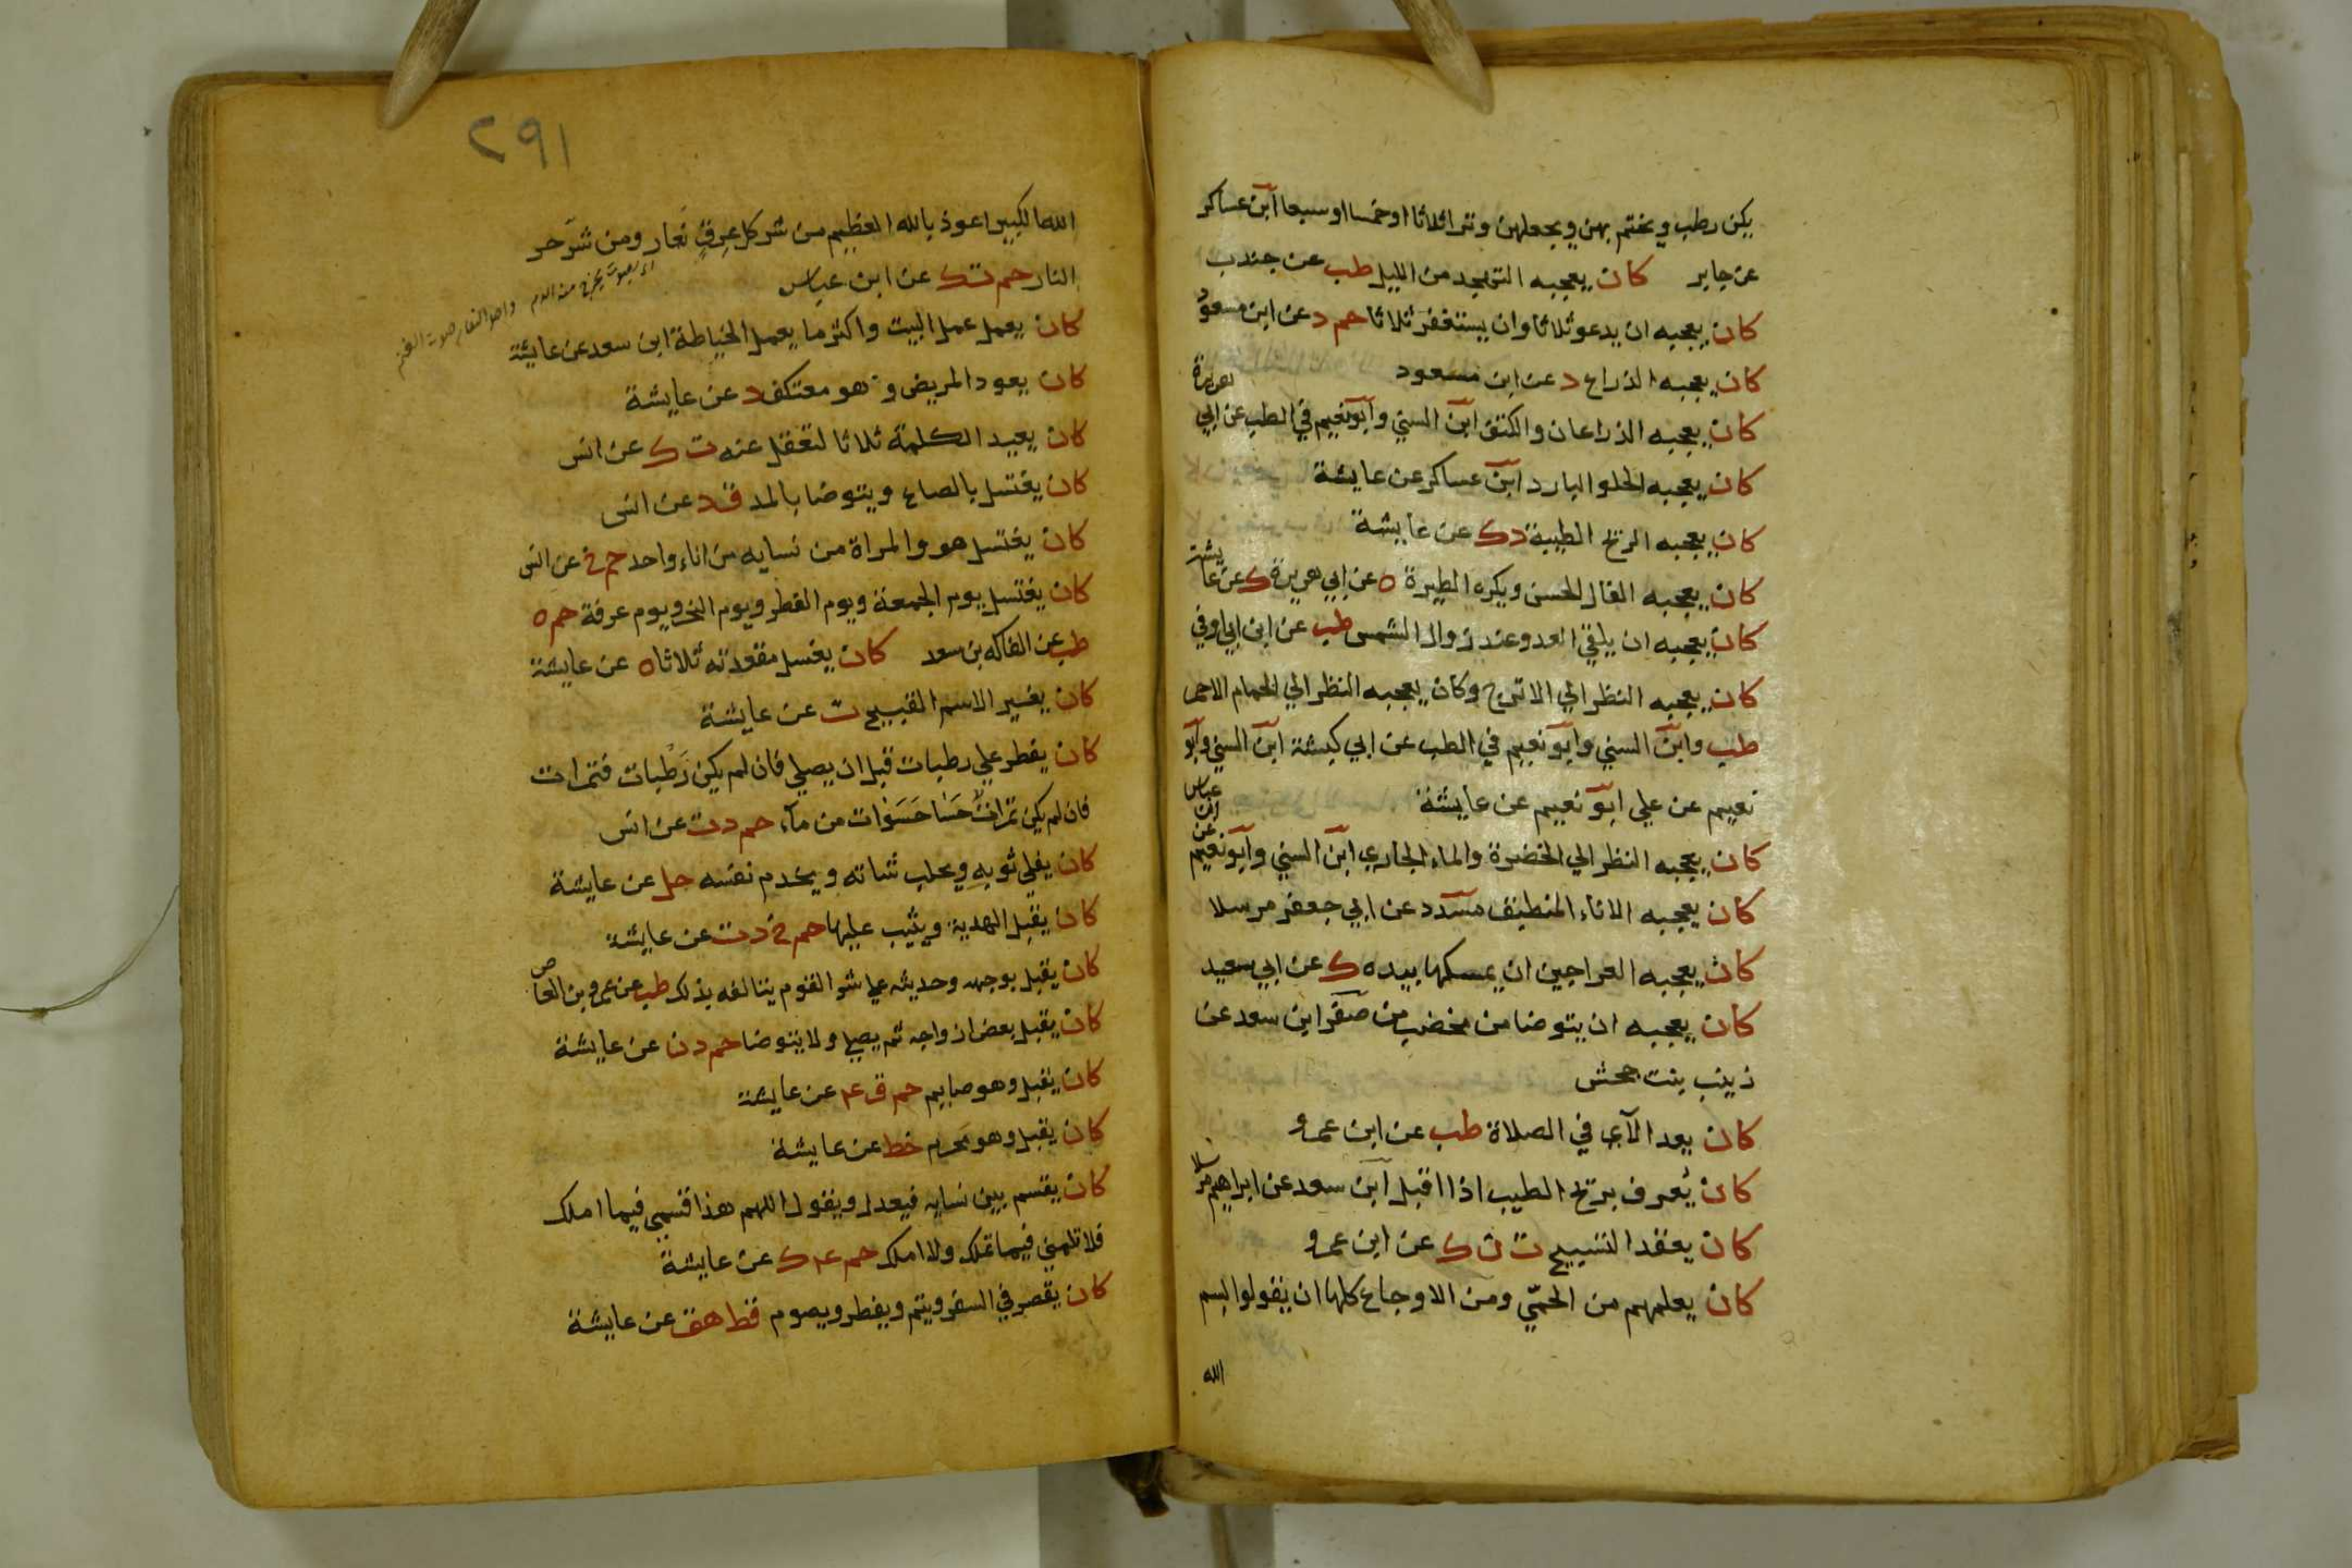 يكن رطب ويختم بهن ويجعلهن وترا ثلاثا او خمسا او سبعا ابن عساكر
عن جابر كان يعجبه التهجد من الليل طب عن جندب
كان يعجبه ان يدعو ثلاثا وان يستغفر ثلاثا حم د عن ابن مسعود
كان يعجبه الذراع د عن ابن مسعود
كان يعجبه الذراعان والكتف ابن السني وابو نعيم في الطب عن ابي هريرة
كان يعجبه الحلو البارد ابن عساكر عن عايشة
كان يعجبه الريح الطيبة د ك عن عايشة
كان يعجبه الفال الحسن ويكره الطيرة ه عن ابي هريرة ك عن عايشة
كان يعجبه ان يلقي العدو عند زوال الشمس طب عن ابن ابي اوفي
كان يعجبه النظر الي الاترج وكان يعجبه النظر الي الحمام الاحمر
طب وابن السني وابو نعيم في الطب عن ابي كبشة ابن السني وابو
نعيم عن علي ابو نعيم عن عايشة
كان يعجبه النظر الي الخضرة والماء الجاري ابن السني وابو نعيم عن ابن عباس
كان يعجبه الاناء المنطبق مسدد عن ابي جعفر مرسلا
كان يعجبه العراجين ان يمسكها بيده ك عن ابي سعيد
كان يعجبه ان يتوضا من مخضب من صفر ابن سعد عن
زينب بنت جحش
كان يعد الآي في الصلاة طب عن ابن عمرو
كان يُعرف بريح الطيب اذا اقبل ابن سعد عن ابراهيم مرسلا
كان يعقد التسبيح ت ن ك عن ابن عمرو
كان يعلمهم من الحمّي ومن الاوجاع كلها ان يقولوا بسم
الله
٢٩١
الله الكبير اعوذ بالله العظيم من شر كل عِرقٍ نَعار ومن شرّ حر
النار حم ت ك عن ابن عباس
كان يعمل عمل البيت واكثر ما يعمل الخياطة ابن سعد عن عايشة
كان يعود المريض وهو معتكف د عن عايشة
كان يعيد الكلمة ثلاثا لتعقل عنه ت ك عن انس
كان يغتسل بالصاع ويتوضا بالمد ق د عن انس
كان يغتسل هو والمراة من نسايه من اناء واحد حم خ عن انس
كان يغتسل يوم الجمعة ويوم الفطر ويوم النحر ويوم عرفة حم ه
طب عن الفاكه بن سعد كان يغسل مقعدته ثلاثا ه عن عايشة
كان يغير الاسم القبيح ت عن عايشة
كان يفطر علي رطبات قبل ان يصلي فان لم يكن رَطبات فتمرات
فان لم يكن تمرات حَسَا حَسَوَات من مآء حم د ت عن انس
كان يفلي ثوبه ويحلب شاته ويخدم نفسه حل عن عايشة
كان يقبل الهدية ويثيب عليها حم خ د ت عن عايشة
كان يقبل بوجهه وحديثه علي شر القوم يتالفه بذلك طب عن عمرو بن العاص
كان يقبل بعض ازواجه ثم يصلي ولا يتوضا حم د ن عن عايشة
كان يقبل وهو صايم حم ق ٤ عن عايشة
كان يقبل وهو محرم خط عن عايشة
كان يقسم بين نسايه فيعدل ويقول اللهم هذا قسمي فيما املك
فلا تلمني فيما تملك ولا املك حم ٤ ك عن عايشة
كان يقصر في السفر ويتم ويفطر ويصوم قط هق عن عايشة